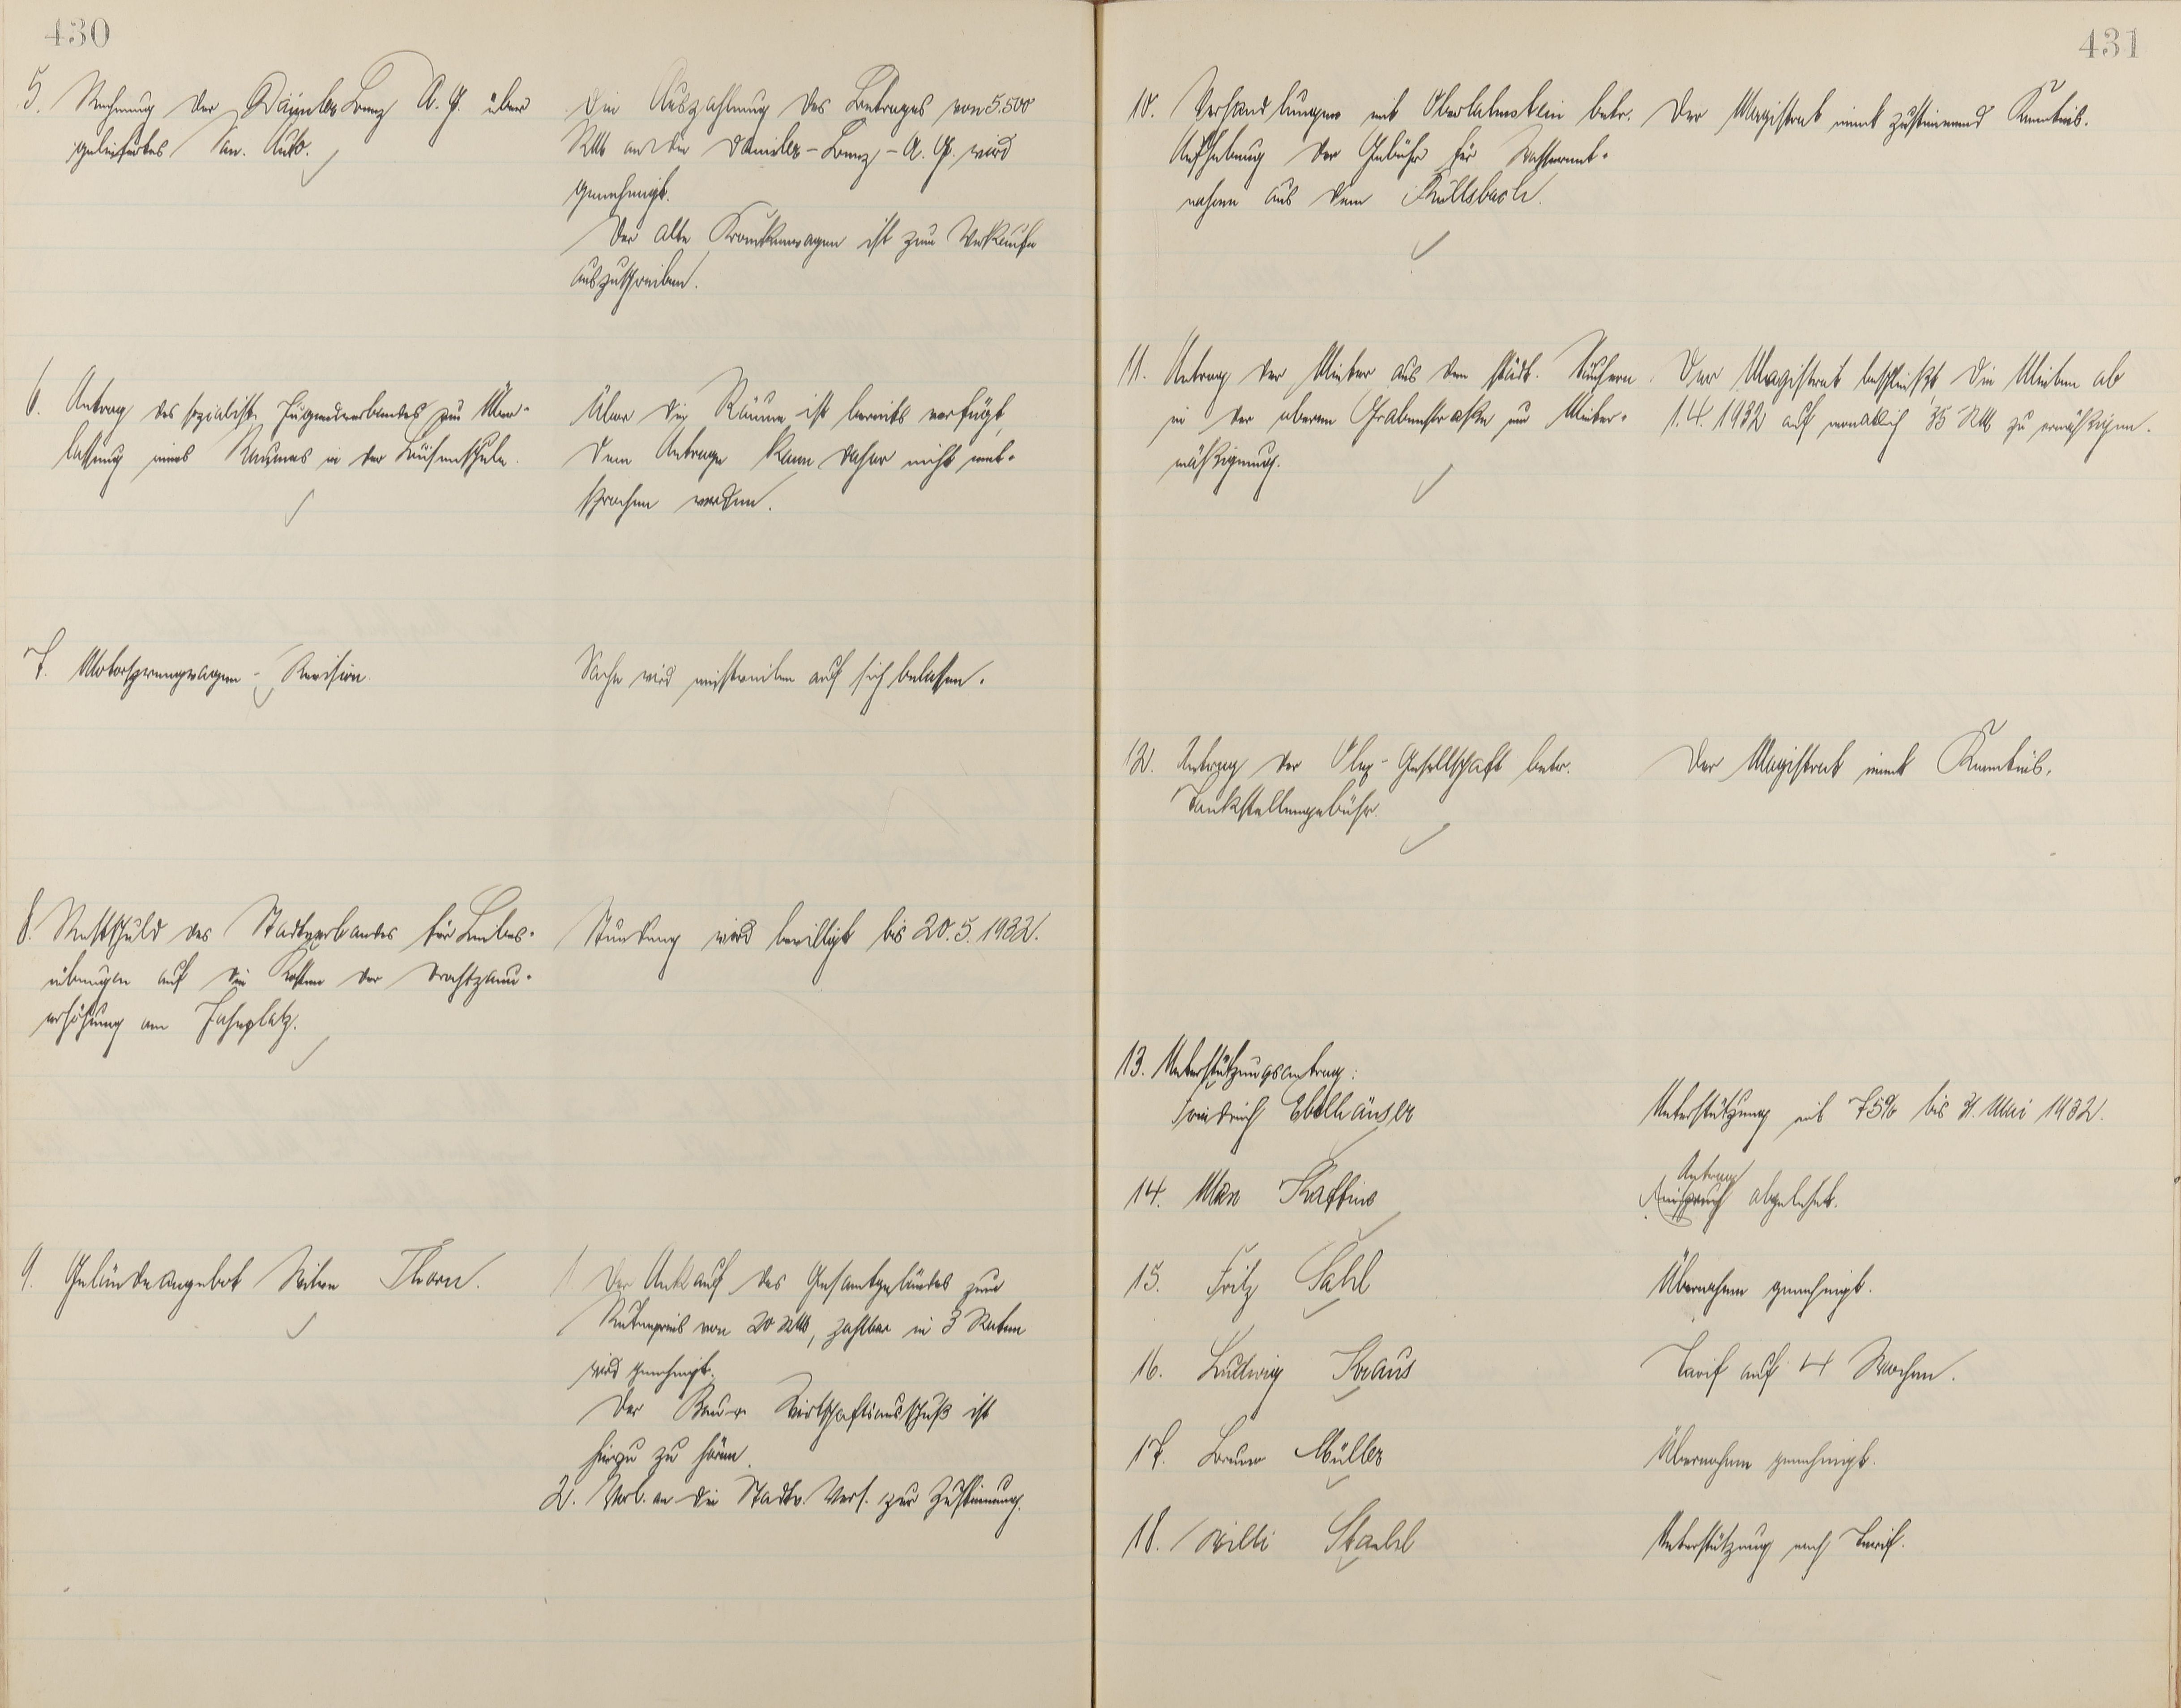 430
5. Rechnung der Daimler Benz A. G. über
geliefertes San. Auto.
Die Auszahlung des Betrages von 5.500
RM an die Daimler-Benz-A. G. wird
genehmigt.
Der alte Krankenwagen ist zum Verkaufe
auszuschreiben.
6. Antrag des sozialist. Jugendverbandes zur Über-
lassung eines Raumes in der Luisenschule.
Über die Räume ist bereits verfügt,
dem Antrage kann daher nicht ent-
sprochen werden.
7. Motorsprengwagen-Revision.
Sache wird einstweilen auf sich belassen.
8. Restschuld des Stadtverbandes für Leibes-
übungen auf die Kosten der Drahtzaun-
erhöhung am Jahnplatz.
Stundung wird bewilligt bis 20.5.1932.
9. Geländeangebot Witwe Thorn.
1. Der Ankauf des Gesamtgeländes zum
Rutenpreis von 20 RM, zahlbar in 3 Raten
wird genehmigt.
Der Bau- u. Wirtschaftsausschuß ist
hierzu zu hören.
2. Vorl. an die Stadtv. Vers. zur Zustimmung.
431
10. Verhandlungen mit Oberlahnstein betr.
Aufhebung der Gebühr für Wasserent-
nahme aus dem
Der Magistrat nimt zustimmend Kenntnis.
11. Antrag der Mieter aus den städt. Häusern
in der oberen Grabenstraße um Mieter-
mäßigung.
Der Magistrat beschließt die Mieten ab
1.4.1932 auf monatlich 35 RM zu ermäßigen.
12. Antrag der Olex-Gesellschaft betr.
Tankstellengebühr.
Der Magistrat nimt Kenntnis.
13. Unterstützungsantrag:
Friedrich Ebelhäuser
Unterstützung mit 75% bis 31. Mai 1932.
14. Max
Antrag
Einspruch abgelehnt.
15. Fritz Sahl
Übernahme genehmigt.
16. Ludwig Kraus
Tarif auf 4 Wochen.
17. Bruno Müller
Übernahme genehmigt.
18. Willi Stahl
Unterstützung nach Tarif.